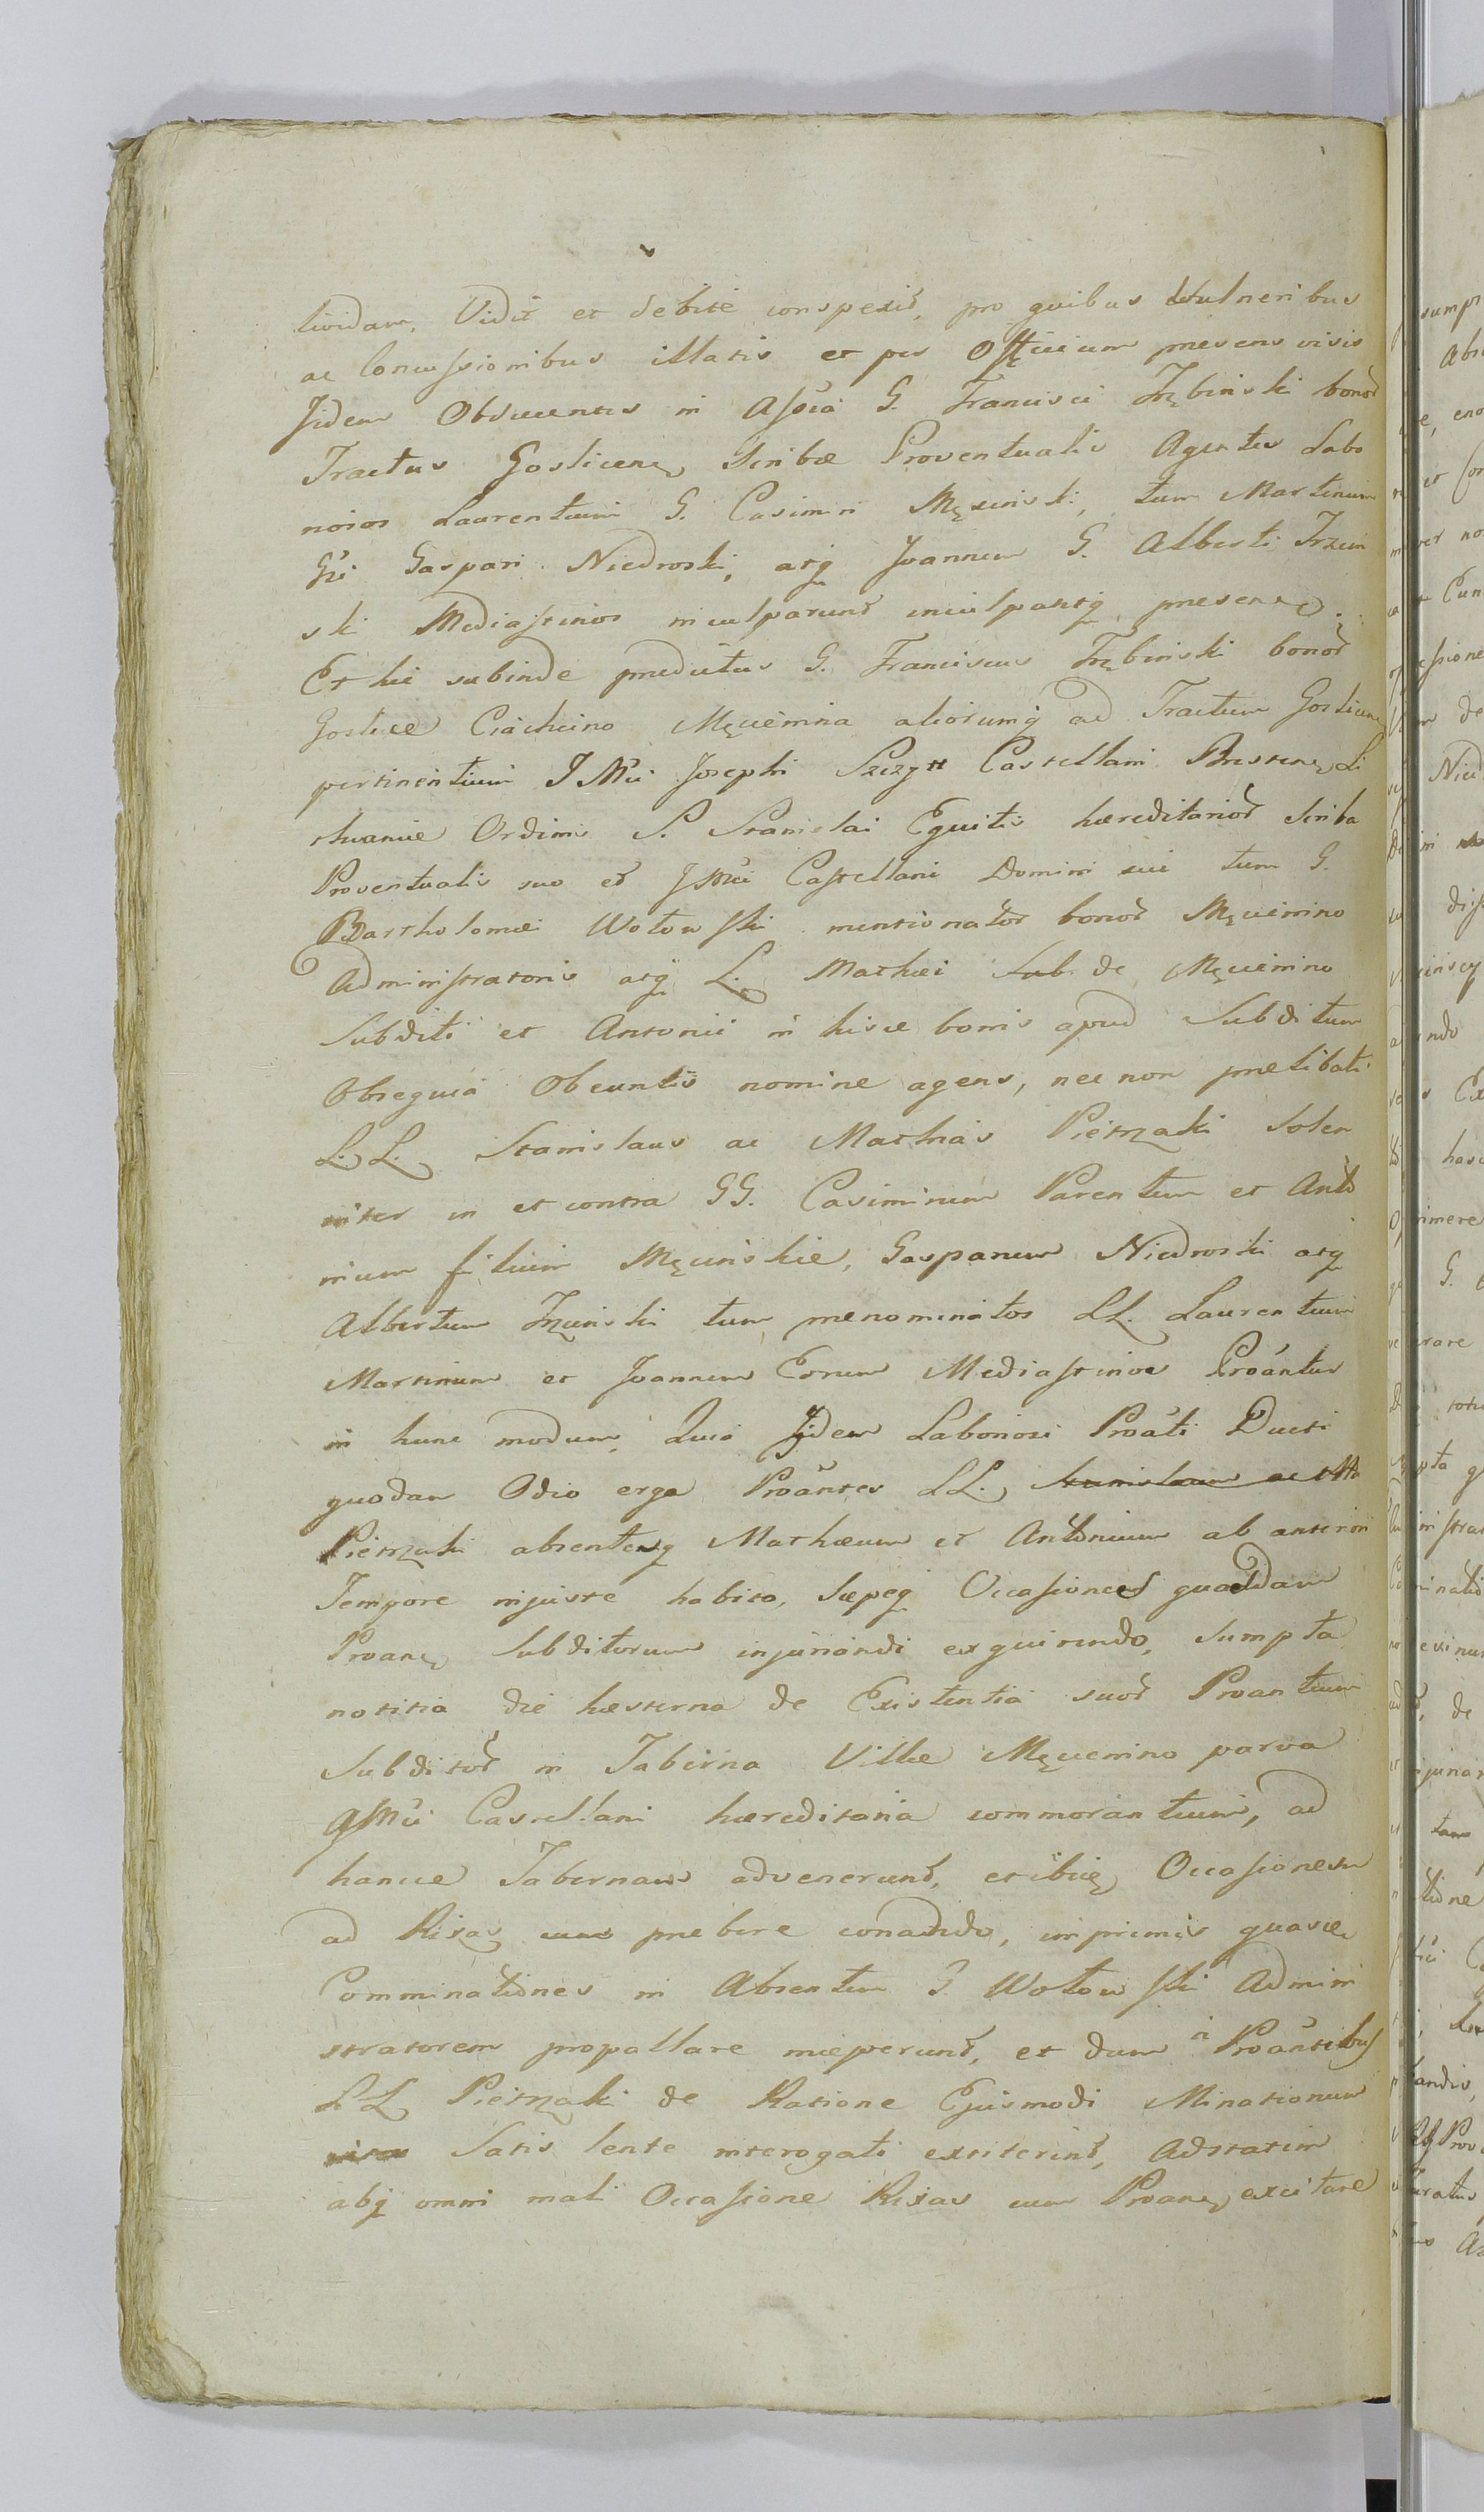 lividam, Vidit et debite conspexit, pro quibus Vulneribus
ac Concussionibus illatis et per Officium presens visis
Iidem Obducentes in Assia G. Francisci Trębinski bonor
Tractus Goslicen Scribæ Proventualis Agentes Labo
riosos Laurentium G. Casimiri Męcinski, tum Martinum
Gsi Gaspari Niedroski, atq Joannem G. Alberti Trzcin
ski Mediastinos inculparunt inculpantq presens.
Et hic subinde predictus G. Franciscus Trębinski bonor
Goslice Ciachcino Męcemina aliorumq ad Tractum Goslicen
pertinentium IMci Josephi Szczytt Castellani Bresten Li
thvaniæ Ordinis S. Stanislai Equitis hæreditarior Scriba
Proventualis suo et IMci Castellani Domini sui tum G.
Bartholomæi Wotowski mentionator bonor Męcemino
Administratoris atq L. Mathæi Sub de Męcemino
Subditi et Antonii in hisce bonis apud Subditum
Obsequia Obeuntis nomine agens, nec non prælibati
L.L. Stanislaus ac Mathias Pietrzaki Solen
niter in et contra GG. Casimirum Parentem et Anto
nium filium Męcinskie, Gasparum Niedroski atq
Albertum Trzcinski tum prænominatos LL. Laurentium
Martinum et Joannem Eorum Mediastinos Proantur
in hunc modum, Quia Iidem Laboriosi Proati Ducti
quodam Odio erga Proantes LL. Stanislaum ac Ma
Pietrzaki absentesq Mathæum et Antonium ab anterior
Tempore injuste habito, Sæpeq Occasiones quasdam
Proan Subditorum injuriandi exquirendo, Sumpta
notitia die hæsterna de Existentia suor Proantium
Subditor in Taberna Villæ Męcemino parva
IMci Castellani hæreditaria commorantium, ad
hancce Tabernam advenerunt, et ibiq Occasionem
ad Rixas præbere conando, imprimis quasce
Comminationes in Absentem G. Wotowski Admini
stratorem propallare inceperunt, et dum a Proantibus
LL Pietrzaki de Ratione Ejusmodi Minationum
Satis lente interogati extiterint, Adstatim
absq omni mali Occasione Rixas cum Proan excitare